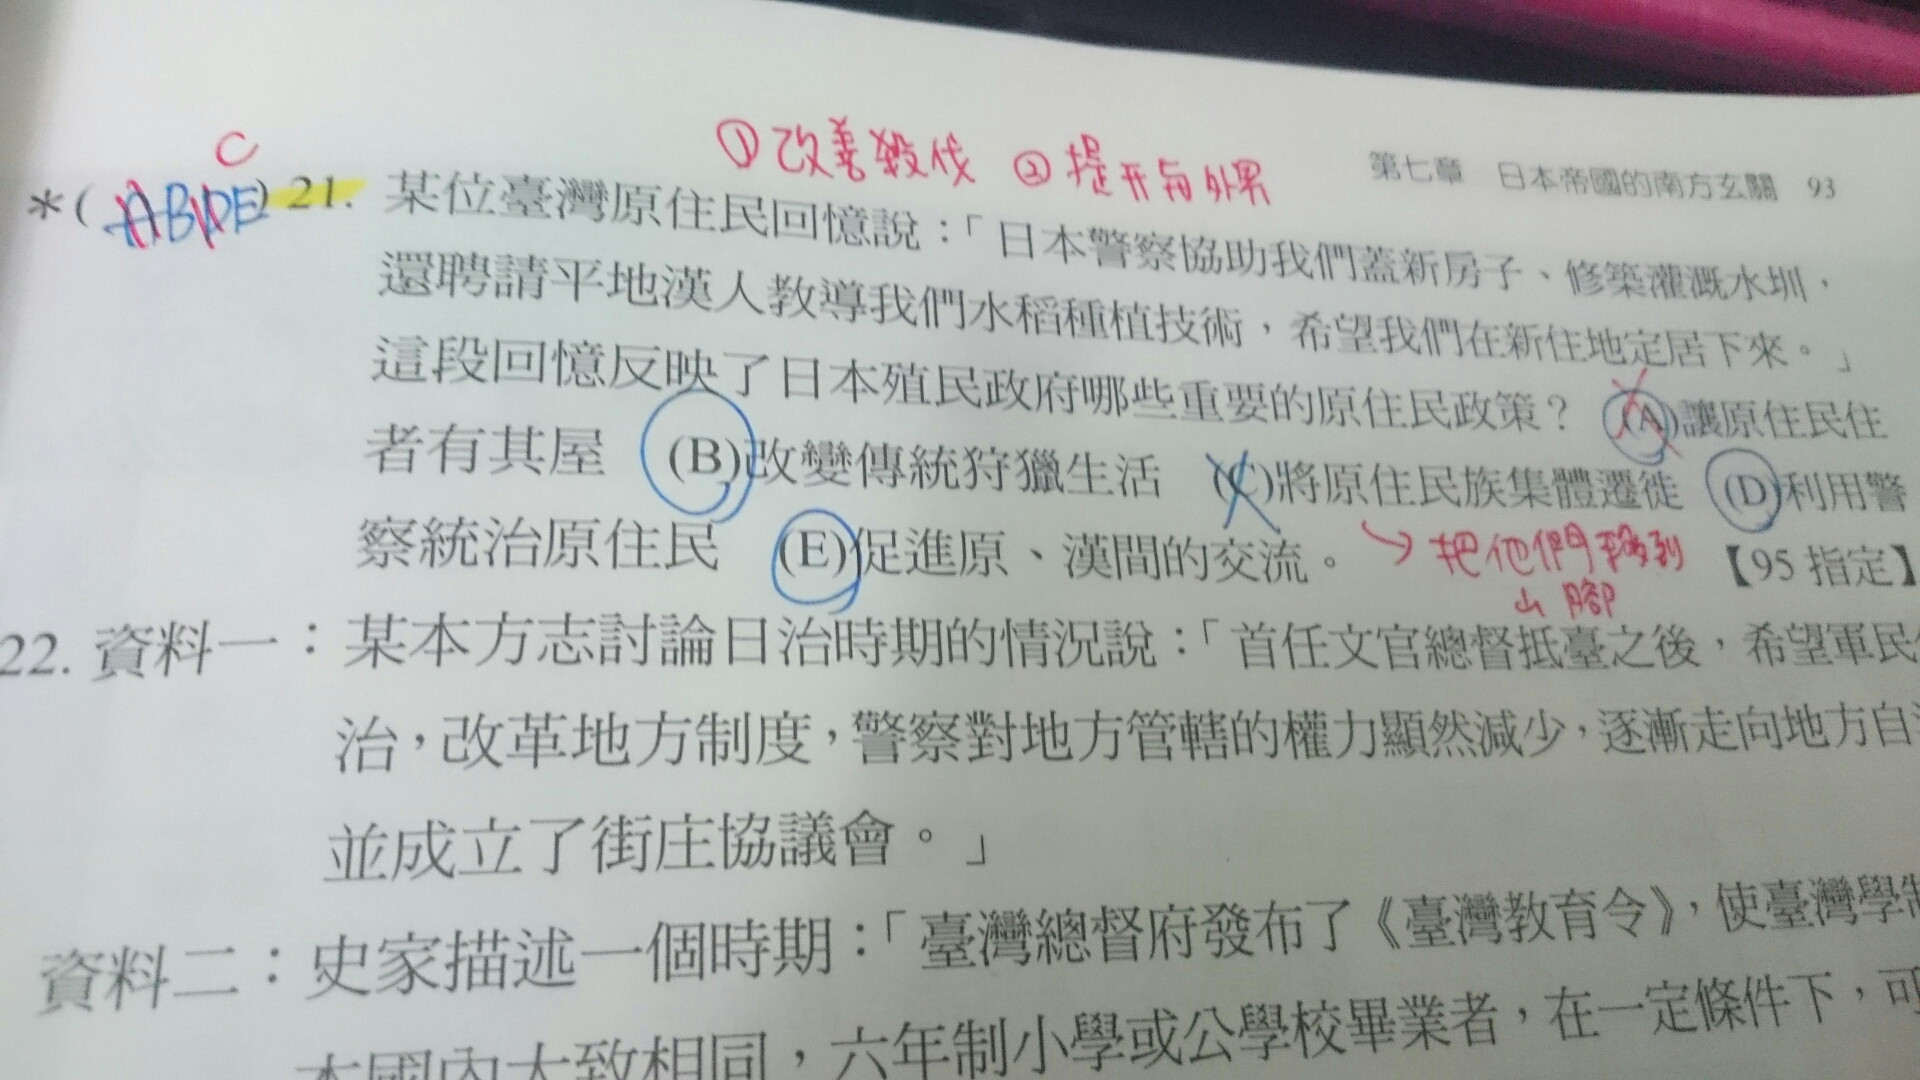 ①改善殺伐 ②提升与外界
第七章 日本帝國的南方玄關 93
C
*( ABDE) 21. 某位臺灣原住民回憶說：「日本警察協助我們蓋新房子、修築灌溉水圳，
還聘請平地漢人教導我們水稻種植技術，希望我們在新住地定居下來。」
這段回憶反映了日本殖民政府哪些重要的原住民政策？ (A)讓原住民住
者有其屋 (B)改變傳統狩獵生活 (C)將原住民族集體遷徙 (D)利用警
察統治原住民 (E)促進原、漢間的交流。 →把他們移到 【95 指定】
山腳
22. 資料一：某本方志討論日治時期的情況說：「首任文官總督抵臺之後，希望軍民
治，改革地方制度，警察對地方管轄的權力顯然減少，逐漸走向地方自
並成立了街庄協議會。」
資料二：史家描述一個時期：「臺灣總督府發布了《臺灣教育令》，使臺灣學制
本國內大致相同，六年制小學或公學校畢業者，在一定條件下，可